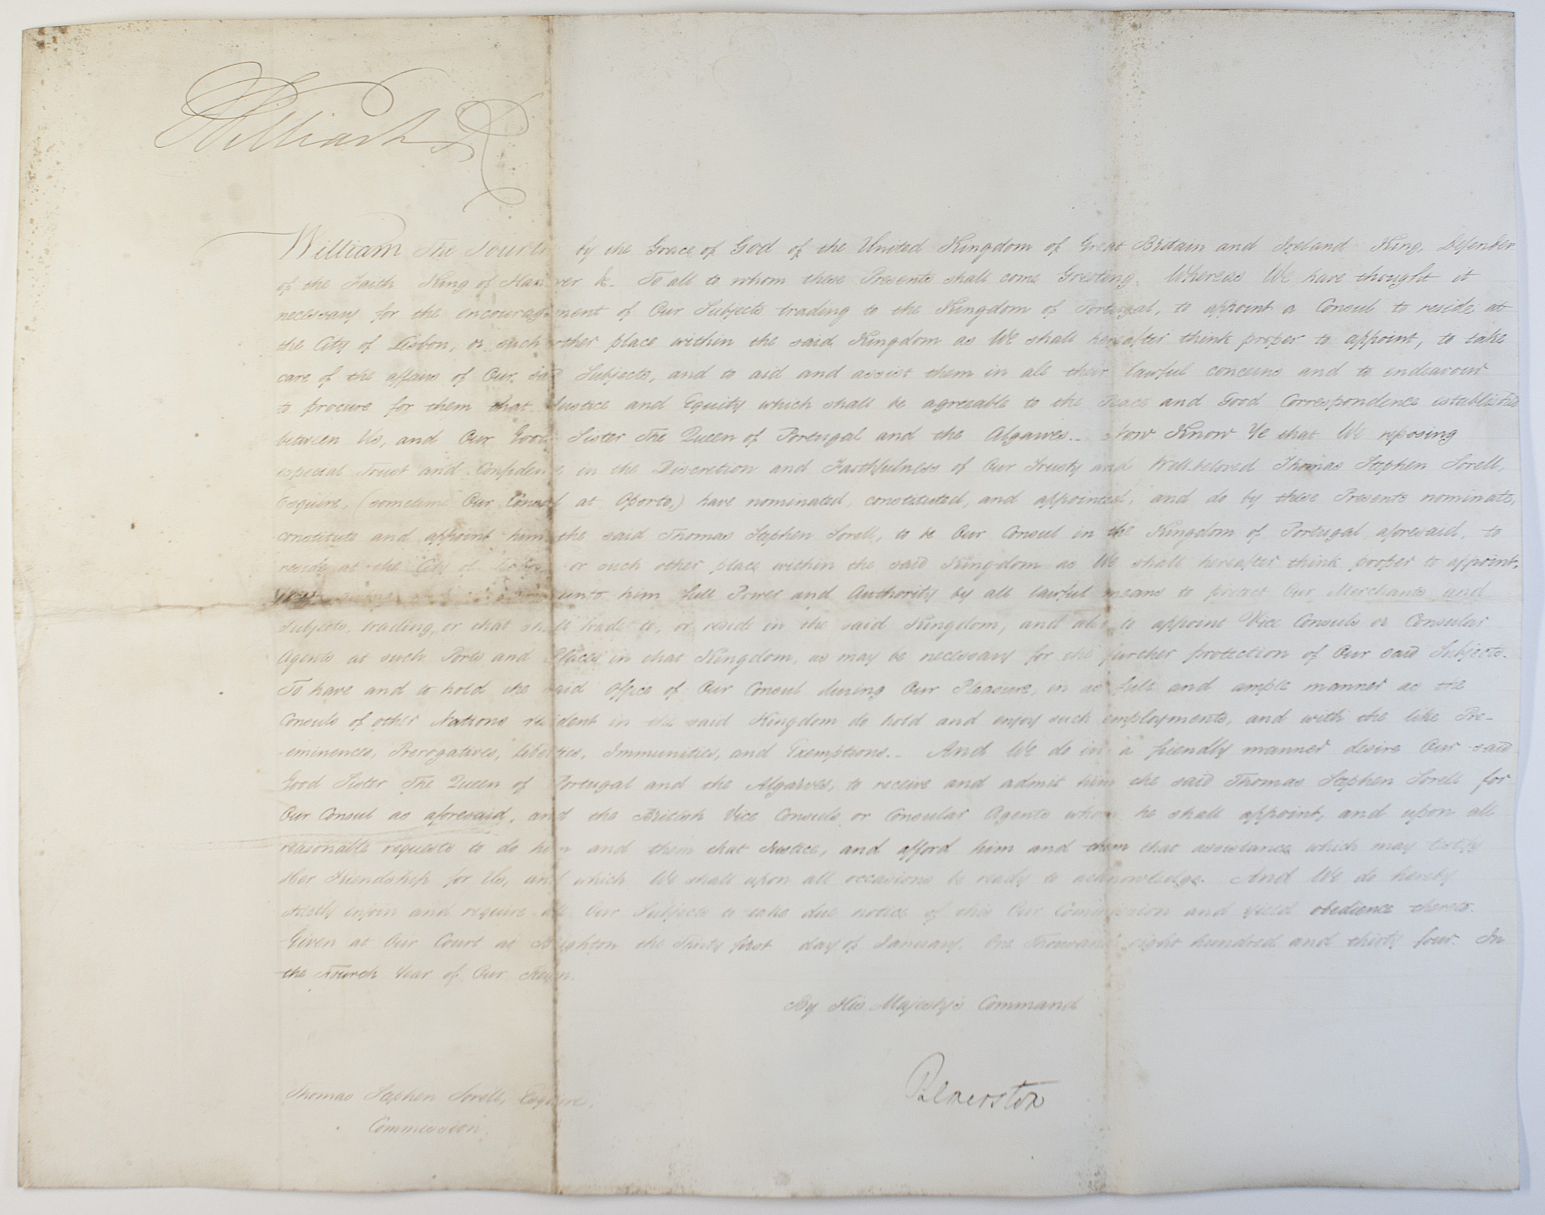 William R
William the Fourth by the Grace of God of the United Kingdom of Great Britain and Ireland King, Defender
of the Faith King of Hanover &c. To all to whom these Presents shall come Greeting. Whereas We have thought it
necessary for the encouragement of Our Subjects trading to the Kingdom of Portugal, to appoint a Consul to reside at
the City of Lisbon, or such other place within the said Kingdom as We shall hereafter think proper to appoint, to take
care of the affairs of Our said Subjects, and to aid and assist them in all their lawful concerns and to endeavour
to procure for them that Justice and Equity which shall be agreeable to the Peace and Good Correspondence established
between Us, and Our Good Sister The Queen of Portugal and the Algarves._ Now Know Ye that We reposing
especial Trust and Confidence in the Discretion and Faithfulness of Our Trusty and Wellbeloved Thomas Stephen Sorell,
Esquire, (sometime Our Consul at Oporto,) have nominated, constituted, and appointed, and do by these Presents nominate,
constitute and appoint him the said Thomas Stephen Sorell, to be Our Consul in the Kingdom of Portugal aforesaid, to
reside at the City of Lisbon or such other place within the said Kingdom as We shall hereafter think proper to appoint,
unto him full Power and Authority by all lawful means to protect Our Merchants and
Subjects, trading, or that shall trade to, or reside in the said Kingdom, and also to appoint Vice Consuls or Consular
Agents at such Ports and Places in that Kingdom, as may be necessary for the further protection of Our said Subjects.
To have and to hold the said Office of Our Consul during Our Pleasure, in as full and ample manner as the
Consuls of other Nations resident in the said Kingdom do hold and enjoy such employments, and with the like Pre-
-eminences, Prerogatives, Liberties, Immunities, and Exemptions._ And We do in a friendly manner desire Our said
Good Sister The Queen of Portugal and the Algarves, to receive and admit him the said Thomas Stephen Sorell for
Our Consul as aforesaid, and the British Vice Consuls or Consular Agents whom he shall appoint, and upon all
reasonable requests to do him and them that Justice, and afford him and them that assistance which may testify
Her Friendship for Us, and which We shall upon all occasions be ready to acknowledge. And We do hereby
strictly enjoin and require all Our Subjects to take due notice of this Our Commission and yield obedience thereto.
Given at Our Court at Brighton the Thirty first day of January, One Thousand eight hundred and thirty four. In
the Fourth Year of Our Reign.
By His Majesty's Command
Palmerston
Thomas Stephen Sorell, Esquire.
Commission.